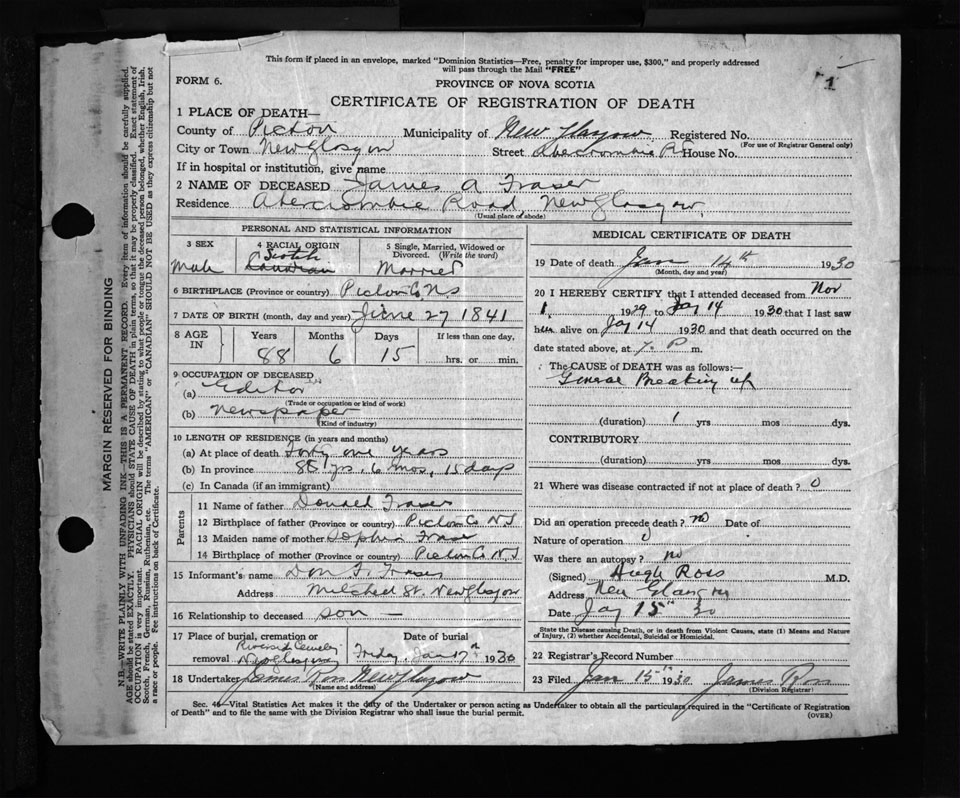 This form if placed in an envelope, marked "Dominion Statistics—Free, penalty for improper use, $300," and properly addressed
will pass through the Mail "FREE"
FORM 6.
PROVINCE OF NOVA SCOTIA
1
CERTIFICATE OF REGISTRATION OF DEATH
1 PLACE OF DEATH—
County of Pictou Municipality of New Glasgow Registered No.
(For use of Registrar General only)
City or Town New Glasgow Street Abercrombie Rd House No.
If in hospital or institution, give name
2 NAME OF DECEASED James A Fraser
Residence Abercrombie Road, New Glasgow,
(Usual place of abode)
PERSONAL AND STATISTICAL INFORMATION
3 SEX 4 RACIAL ORIGIN 5 Single, Married, Widowed or
Divorced. (Write the word)
Scotch
Male Canadian Married
6 BIRTHPLACE (Province or country) Pictou Co. N.S
7 DATE OF BIRTH (month, day and year) June 27 1841
8 AGE IN Years Months Days If less than one day,
88 6 15 hrs. or min.
9 OCCUPATION OF DECEASED
(a) Editor
(Trade or occupation or kind of work)
(b) Newspaper
(Kind of industry)
10 LENGTH OF RESIDENCE (in years and months)
(a) At place of death Forty one years
(b) In province 88 yrs. 6 mos, 15 days
(c) In Canada (if an immigrant)
Parents
11 Name of father Donald Fraser
12 Birthplace of father (Province or country) Pictou Co N.S
13 Maiden name of mother Sophia Fraser
14 Birthplace of mother (Province or country) Pictou Co N.S
15 Informant's name Don F. Fraser
Address Mitchell St. New Glasgow
16 Relationship to deceased son —
17 Place of burial, cremation or removal Date of burial
Riverside Cemetery
New Glasgow Friday Jan 17th 1930
18 Undertaker James Ross New Glasgow
(Name and address)
MEDICAL CERTIFICATE OF DEATH
19 Date of death Jan 14th 1930
(Month, day and year)
20 I HEREBY CERTIFY that I attended deceased from Nov
1, 1929 to Jay 14 1930 that I last saw
him alive on Jay 14 1930 and that death occurred on
date stated above, at 7. P m.
The CAUSE OF DEATH was as follows:—
General Breaking up
(duration) 1 yrs mos dys.
CONTRIBUTORY
(duration) yrs. mos. dys.
21 Where was disease contracted if not at place of death? 0
Did an operation precede death? no Date of
Nature of operation 0
Was there an autopsy? no
(Signed) Hugh Ross M.D.
Address New Glasgow
Date Jay 15th 30
State the Disease causing Death, or in death from Violent Causes, state (1) Means and Nature
of Injury, (2) whether Accidental, Suicidal or Homicidal.
22 Registrar's Record Number
23 Filed Jan 15th 1930 James Ross
(Division Registrar)
Sec. 4—Vital Statistics Act makes it the duty of the Undertaker or person acting as Undertaker to obtain all the particulars required in the "Certificate of Registration
of Death" and to file the same with the Division Registrar who shall issue the burial permit.
(OVER)
MARGIN RESERVED FOR BINDING
N.B.—WRITE PLAINLY WITH UNFADING INK—THIS IS A PERMANENT RECORD. Every item of information should be carefully supplied.
AGE should be stated EXACTLY. PHYSICIANS should STATE CAUSE OF DEATH in plain terms, so that it may be properly classified. Exact statement of
OCCUPATION is very important. RACIAL ORIGIN will be described by stating to what people or tongue the deceased person belonged, whether English, Irish,
Scotch, French, German, Russian, Ruthenian, etc. The terms "AMERICAN" or "CANADIAN" SHOULD NOT BE USED as they express citizenship but not
a race or people. Fee instructions on back of Certificate.